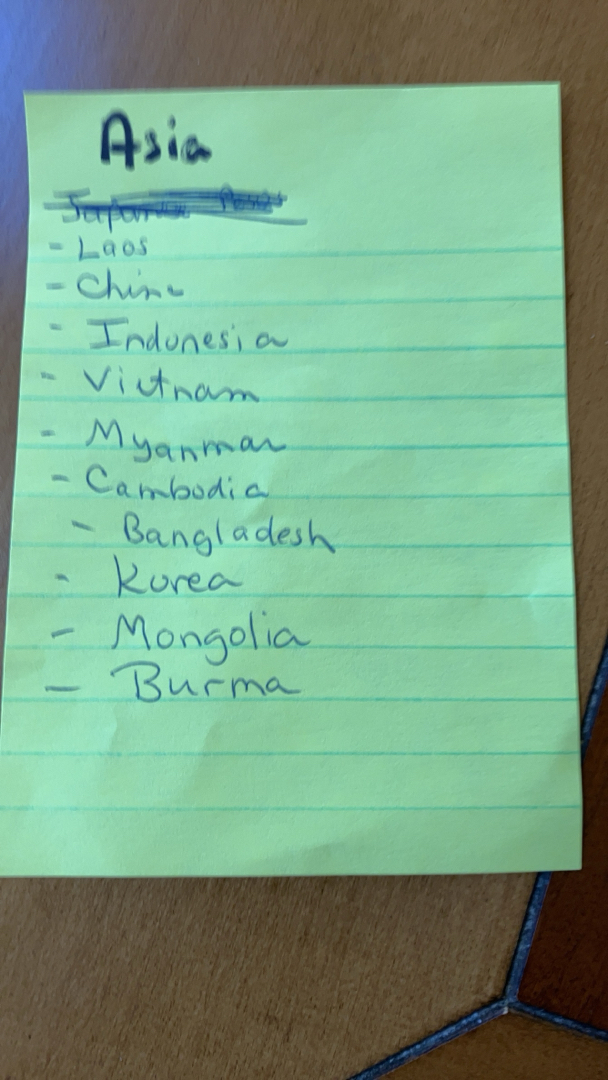 Asia
- Laos
- China
- Indonesia
- Vietnam
- Myanmar
- Cambodia
- Bangladesh
- Korea
- Mongolia
- Burma